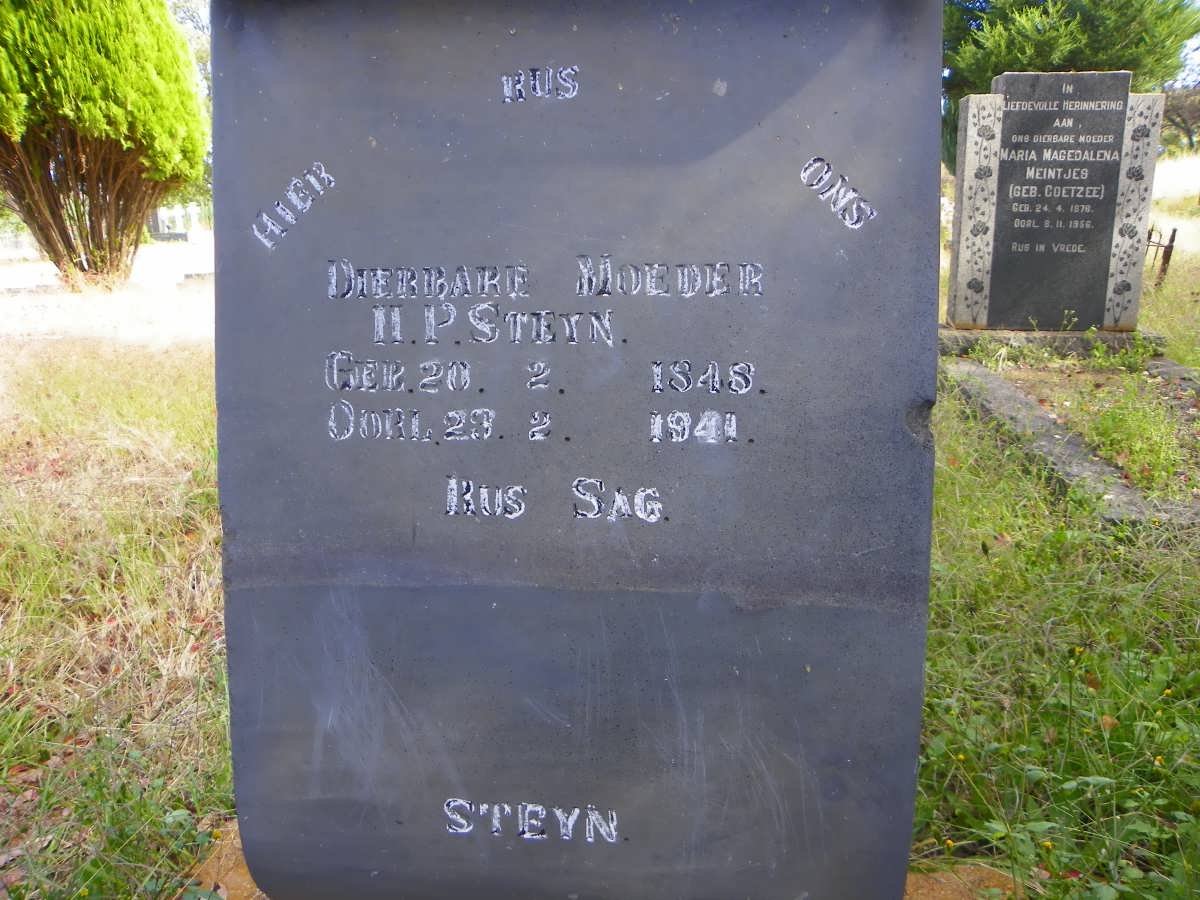 HIER RUS ONS
DIERBARE MOEDER
H. P. STEYN.
GEB. 20. 2. 1848.
OORL. 23. 2. 1941.
RUS SAG.
STEYN.
IN
LIEFDEVOLLE HERINNERING
AAN
ONS DIERBARE MOEDER
MARIA MAGEDALENA
MEINTJES
(GEB. COETZEE)
GEB. 24. 4. 1878.
OORL. 8. 11. 1956.
RUS IN VREDE.